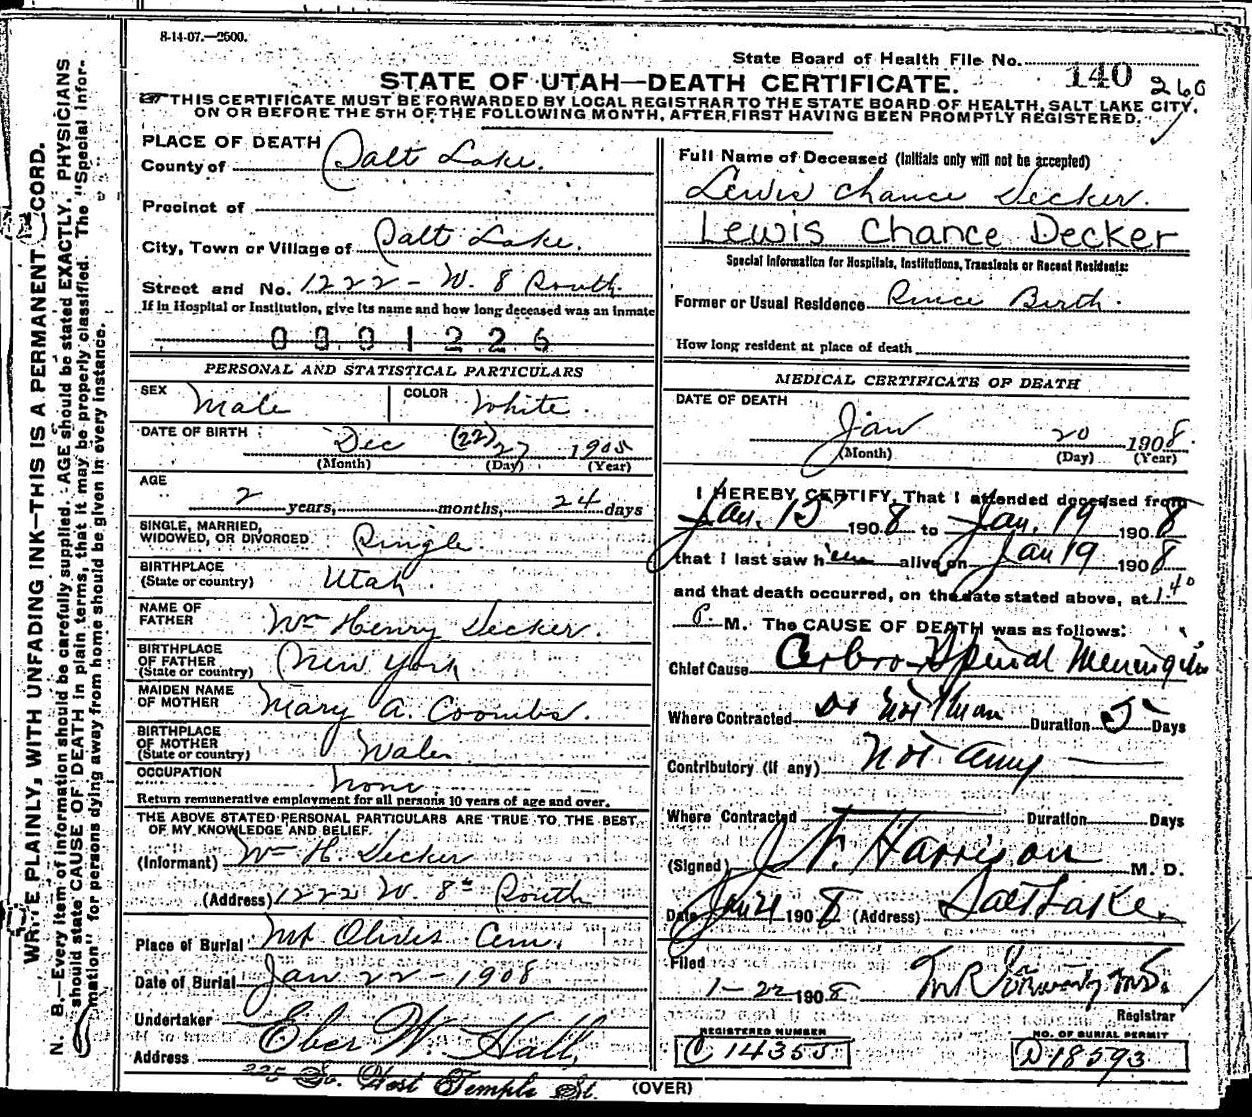 8-14-07.—2500.
State Board of Health File No. 140 260
STATE OF UTAH—DEATH CERTIFICATE.
THIS CERTIFICATE MUST BE FORWARDED BY LOCAL REGISTRAR TO THE STATE BOARD OF HEALTH, SALT LAKE CITY,
ON OR BEFORE THE 5TH OF THE FOLLOWING MONTH, AFTER FIRST HAVING BEEN PROMPTLY REGISTERED.
WRITE PLAINLY, WITH UNFADING INK—THIS IS A PERMANENT RECORD.
N. B.—Every item of information should be carefully supplied. AGE should be stated EXACTLY. PHYSICIANS
should state CAUSE OF DEATH in plain terms, that it may be properly classified. The "Special Infor-
mation" for persons dying away from home should be given in every instance.
PLACE OF DEATH
County of Salt Lake.
Precinct of
City, Town or Village of Salt Lake.
Street and No. 1222 - W. 8 South.
If in Hospital or Institution, give its name and how long deceased was an inmate
0001226
PERSONAL AND STATISTICAL PARTICULARS
SEX Male COLOR White.
DATE OF BIRTH Dec (22) 27 1905
(Month) (Day) (Year)
AGE
2 years, months, 24 days
SINGLE, MARRIED,
WIDOWED, OR DIVORCED Single.
BIRTHPLACE
(State or country) Utah.
NAME OF
FATHER Wm Henry Decker.
BIRTHPLACE
OF FATHER
(State or country) New York
MAIDEN NAME
OF MOTHER Mary A. Coombs.
BIRTHPLACE
OF MOTHER
(State or country) Wales
OCCUPATION none.
Return remunerative employment for all persons 10 years of age and over.
THE ABOVE STATED PERSONAL PARTICULARS ARE TRUE TO THE BEST
OF MY KNOWLEDGE AND BELIEF.
(Informant) Wm H. Decker
(Address) 1222 W. 8th South
Place of Burial Mt Olivis Cem.
Date of Burial Jan 22 - 1908
Undertaker Eber W. Hall,
Address 225 So. West Temple St.
Full Name of Deceased (Initials only will not be accepted)
Lewis Chance Decker.
Lewis Chance Decker
Special Information for Hospitals, Institutions, Transients or Recent Residents:
Former or Usual Residence Since Birth.
How long resident at place of death
MEDICAL CERTIFICATE OF DEATH
DATE OF DEATH
Jan 20 1908.
(Month) (Day) (Year)
I HEREBY CERTIFY, That I attended deceased from
Jan. 15 1908 to Jan. 19 1908
that I last saw him alive on Jan 19 1908
and that death occurred, on the date stated above, at 1.40
P. M. The CAUSE OF DEATH was as follows:
Chief Cause Cerbro-Spinal Meningitis
Where Contracted Do not know Duration 5 Days
Contributory (if any) not any
Where Contracted Duration Days
(Signed) J. F. Harrison M. D.
Date Jan 21 1908 (Address) Salt Lake.
Filed
1-22 1908
Registrar
REGISTERED NUMBER
C 14355
NO. OF BURIAL PERMIT
D18593
(OVER)